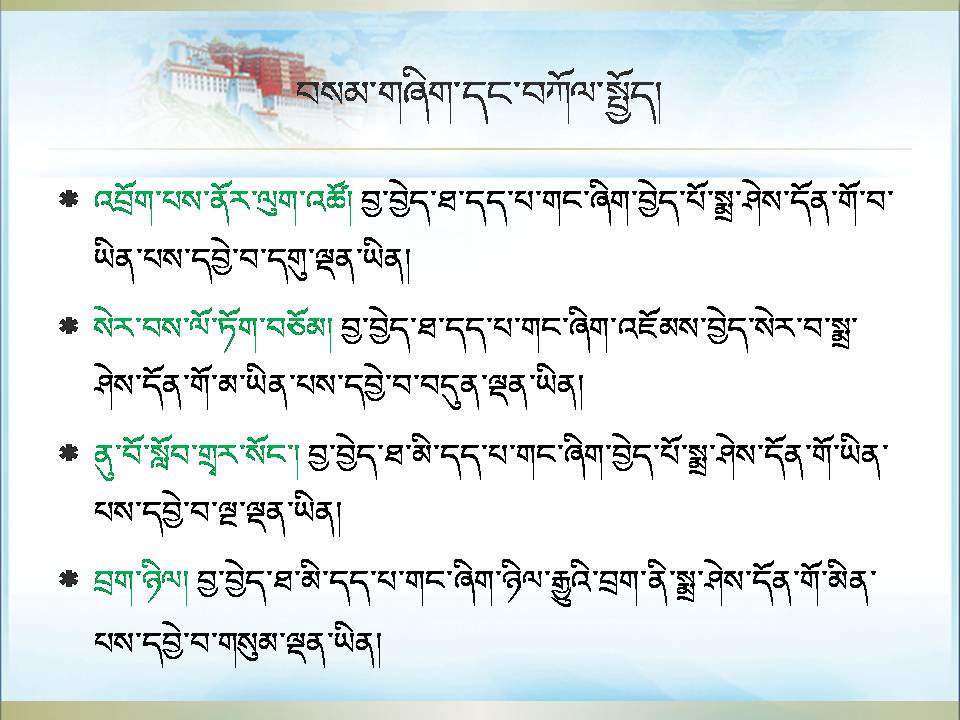 བསམ་གཞིག་དང་བཀོལ་སྤྱོད།
འབྲོག་པས་ནོར་ལུག་འཚོ། བྱ་བྱེད་ཐ་དད་པ་གང་ཞིག་བྱེད་པོ་སྨྲ་ཤེས་དོན་གོ་བ་
ཡིན་པས་དབྱེ་བ་དགུ་ལྡན་ཡིན།
སེར་བས་ལོ་ཏོག་བཅོམ། བྱ་བྱེད་ཐ་དད་པ་གང་ཞིག་འཇོམས་བྱེད་སེར་བ་སྨྲ་
ཤེས་དོན་གོ་མ་ཡིན་པས་དབྱེ་བ་བདུན་ལྡན་ཡིན།
ནུ་བོ་སློབ་གྲྭར་སོང་། བྱ་བྱེད་ཐ་མི་དད་པ་གང་ཞིག་བྱེད་པོ་སྨྲ་ཤེས་དོན་གོ་ཡིན་
པས་དབྱེ་བ་ལྔ་ལྡན་ཡིན།
བྲག་ཉིལ། བྱ་བྱེད་ཐ་མི་དད་པ་གང་ཞིག་ཉིལ་རྒྱུའི་བྲག་ནི་སྨྲ་ཤེས་དོན་གོ་མིན་
པས་དབྱེ་བ་གསུམ་ལྡན་ཡིན།